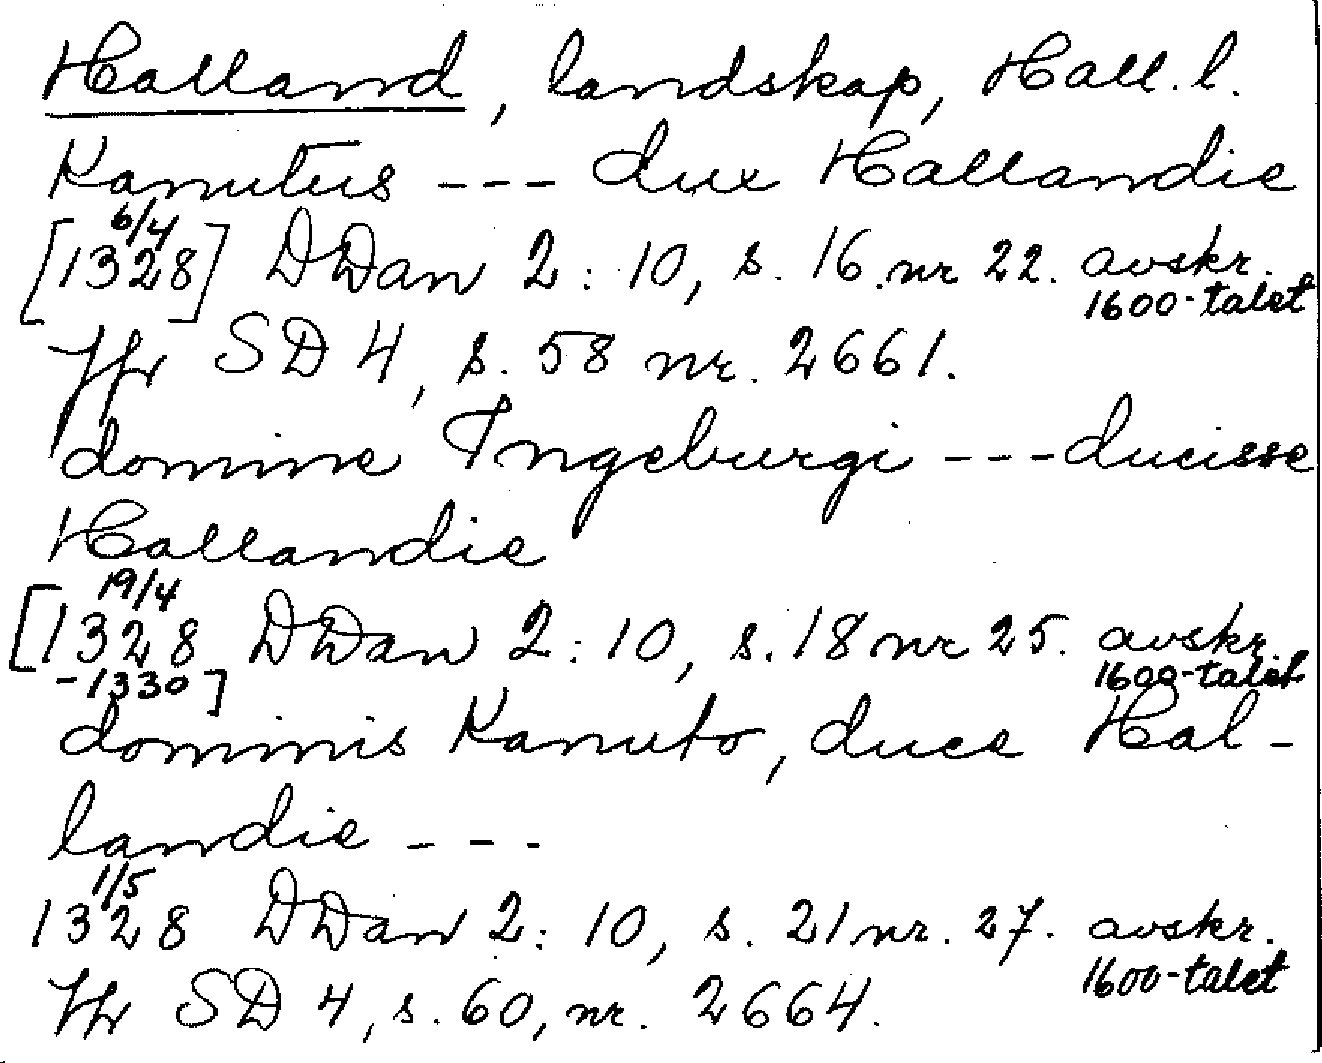 Halland, landskap, Hall. l.
Kanutus --- dux Hallandie
6/4
[1328] DDan 2: 10, s. 16 nr 22. avskr.
1600-talet
Jfr SD 4, s. 58 nr. 2661.
domine Ingeburgi --- ducisse
Hallandie
19/4
[1328 DDan 2: 10, s. 18 nr 25. avskr.
-1330] 1600-talet
dominis Kanuto, duce Hal-
landie ---
1/5
1328 DDan 2: 10, s. 21 nr. 27. avskr.
1600-talet
Jfr SD 4, s. 60, nr. 2664.